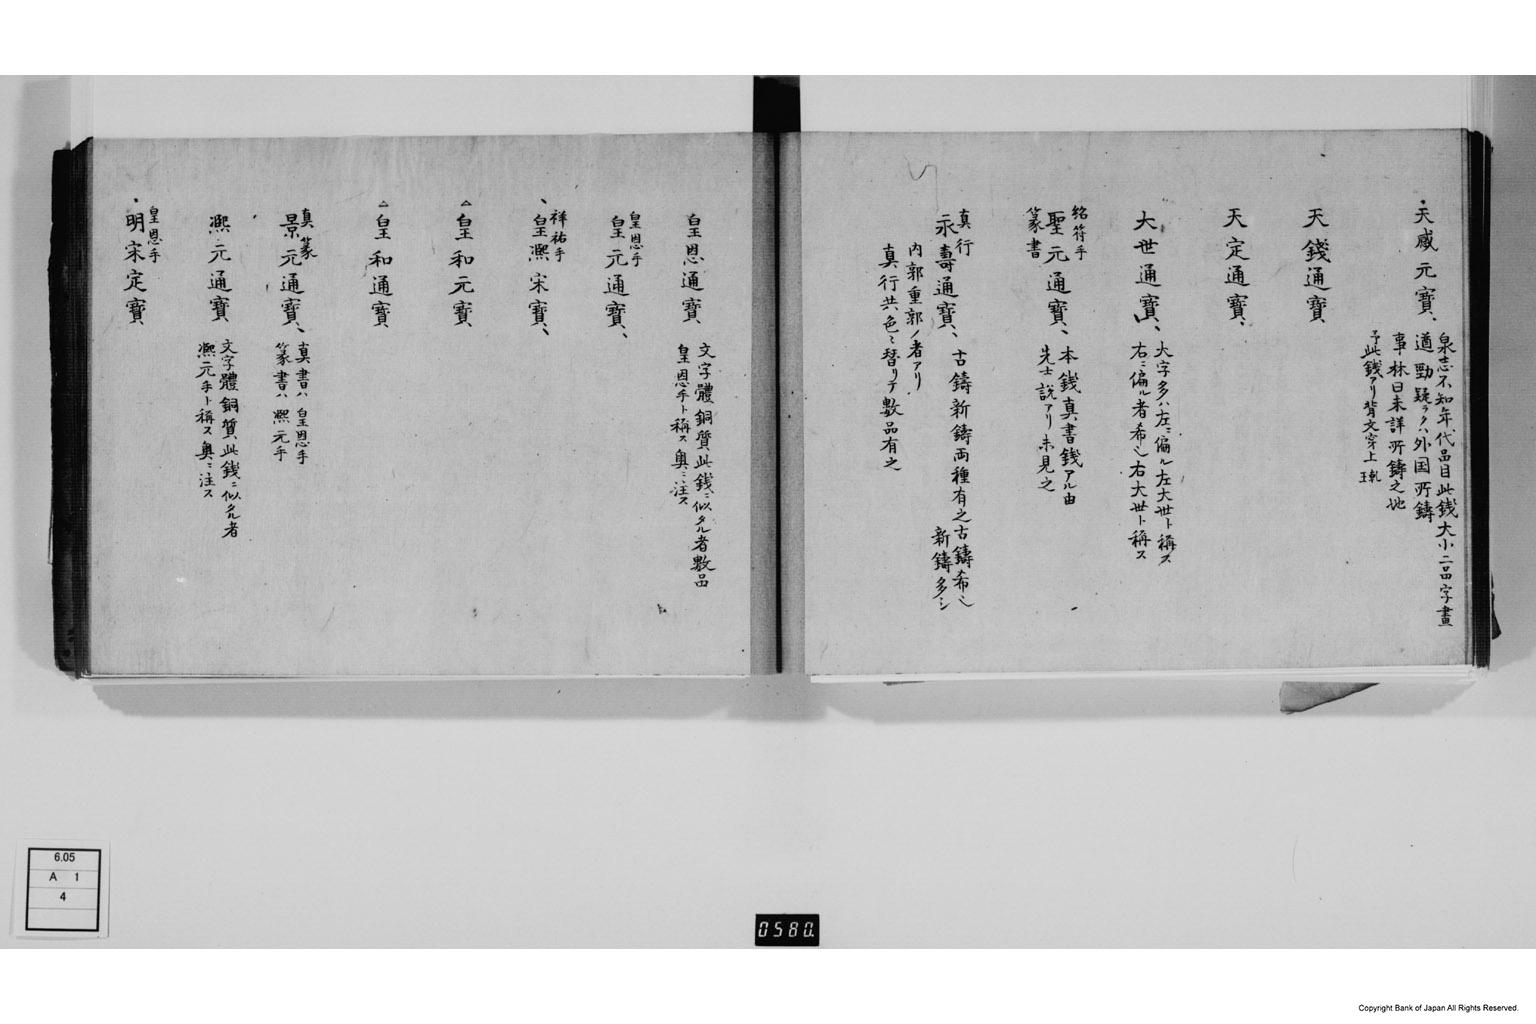 天感元寳
泉志不知年代品目此銭大小二品字畫
遒勁疑ラクハ外国所鑄
事林日未詳所鑄之地
予此銭アリ背文穿上
天錢通寳
天定通寳
大世通寳
大字多ハ左ニ偏ル左大世ト稱ス
右ニ偏ル者希也右大世ト稱ス
紹符手
聖元通寳
篆書
本銭真書銭アル由
先士説アリ未見之
真行
永壽通寳
古鑄新鑄両種有之古鑄希也
新鑄多シ
内郭重郭ノ者アリ
真行共色々替リテ數品有之
皇恩通寳
文字體銅質此銭ニ似タル者數品
皇恩手ト稱ス奥ニ注ス
皇恩手
皇元通寳
祥祐手
皇熈宋寳
皇和元寳
皇和通寳
真篆
景元通寳
真書ハ皇恩手
篆書ハ熈元手
熈元通寳
文字體銅質此銭ニ似タル者
熈元手ト稱ス奥ニ注ス
皇恩手
明宋定寳
6.05
A 1
4
0580.
Copyright Bank of Japan All Rights Reserved.